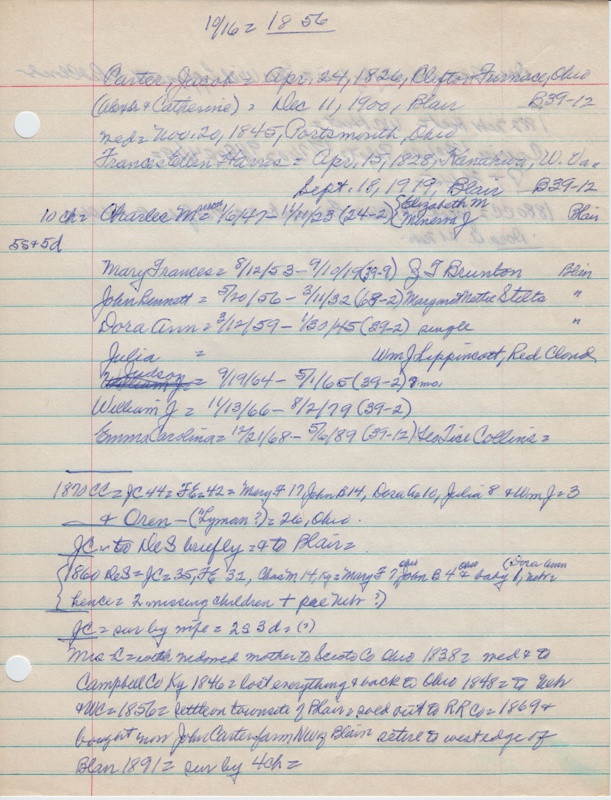 19/16 = 1856
Carter, Jacob = Apr. 24, 1826, Clifton Furnace, Ohio
( & Catherine) = Dec 11, 1900, Blair B39-12
med = Nov. 20, 1845, Portsmouth, Ohio
Frances Ellen Harris = Apr. 15, 1828, Kanahwa, W. Va.
Sept. 18, 1919, Blair B39-12
10 ch = Charles M = 1/6/47 - 1/21/23 (24-2) { Elizabeth M Blair
5s + 5d Minerva J
Mary Frances = 8/12/53 - 9/10/19 (39-9) J T Brunton Blair
John Bennett = 5/20/56 - 3/11/32 (68-2) Margaret Mettie Stelts "
Dora Ann = 3/12/59 - 1/30/45 (39-2) single "
Julia = Wm J Lippincott, Red Cloud
Judson = 9/19/64 - 5/1/65 (39-2) 8 mo.
William J = 11/13/66 - 8/2/79 (39-2)
Emma Carolina = 12/21/68 - 5/6/89 (39-12) Collins =
1870 CC = JC 44 = FE = 42 = Mary F 17, John B 14, Dora A 10, Julia 8 & Wm J = 3
& Oren - ("Lyman"?) = 26, Ohio.
JC = to DeS briefly = & to Blair =
{ 1860 DeS = JC = 35, FE 32, Chas M 14, Ky = Mary F 7 Ohio John B. 4 Ohio & baby 1, Nebr = (Dora Ann
hence = 2 missing children + pre Nebr ?)
JC = sur by wife = 2s 3d = (?)
Mrs C = with widowed mother to Scioto Co Ohio 1838 = med & to
Campbell Co Ky 1846 = lost everything & back to Ohio 1848 = to Neb
& WC = 1856 = settle on townsite of Blair = sold out to RR Co = 1869 &
bought now John Carter farm NW of Blair retire to west edge of
Blair 1891 = sur by 4 ch =